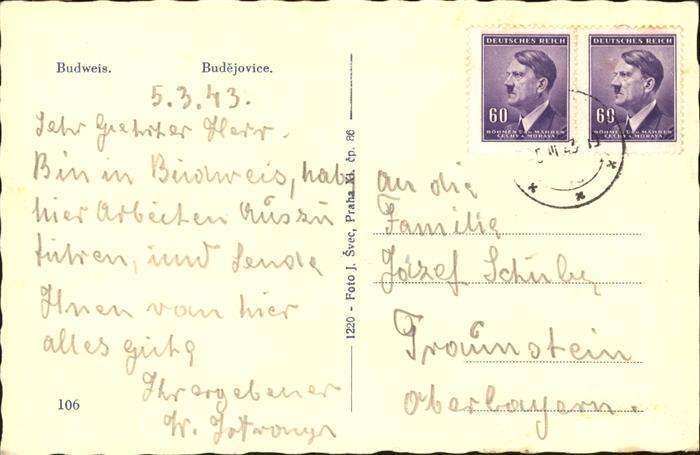 Budweis. Budějovice.
5.3.43.
Sehr Geehrter Herr.
Bin in Budweis, habe
hier Arbeiten Auszu
führen, und Sende
Ihnen von hier
alles gute
Ihr ergebener
W.
106
1220 - Foto J. Švec, Praha XI. čp. 86
DEUTSCHES REICH
60
BÖHMEN UND MÄHREN
ČECHY A MORAVA
DEUTSCHES REICH
60
BÖHMEN UND MÄHREN
ČECHY A MORAVA
An die
Familie
Josef
Traunstein
Oberbayern.